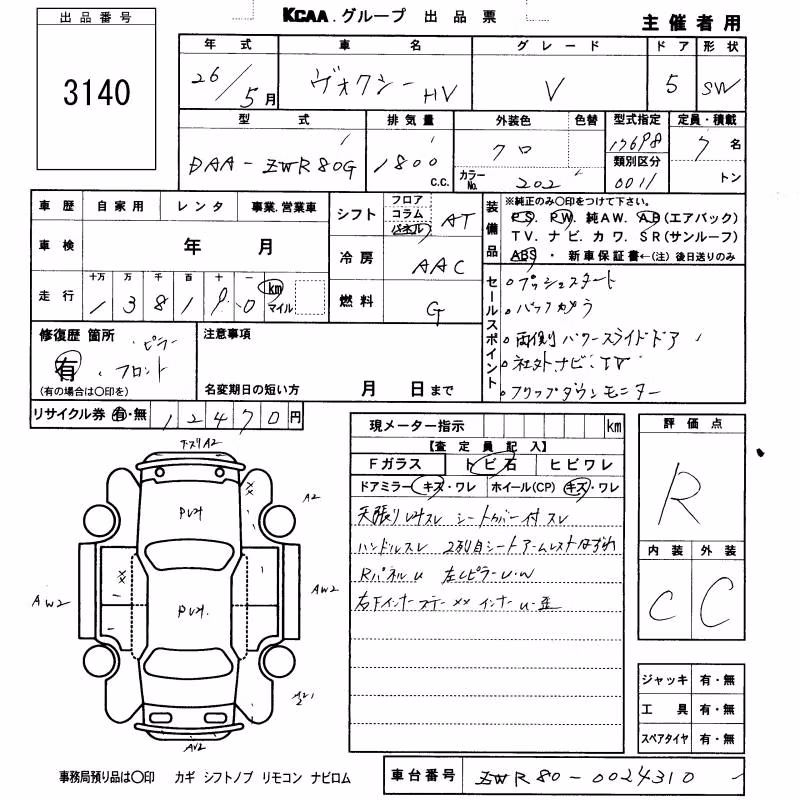 KCAA.グループ 出品票
主催者用
出品番号
3140
年式 車名 グレード ドア 形状
26/5月 ヴォクシー HV V 5 SW
型式 排気量 外装色 色替 型式指定 定員・積載
DAA-ZWR80G 1800 c.c. クロ カラーNo. 202 17698 類別区分 0011 7名 トン
車歴 自家用 レンタ 事業.営業車
車検 年 月
走行 十万 万 千 百 十 一
1 3 8 1 9 0 km マイル
シフト フロア コラム パネル AT
冷房 AAC
燃料 G
装備品
※純正のみ○印をつけて下さい。
PS. PW. 純AW. AB(エアバック)
TV. ナビ. カワ. SR(サンルーフ)
ABS ・ 新車保証書←(注)後日送りのみ
セールスポイント
○プッシュスタート
○バックカメラ
○両側パワースライドドア
○社外ナビ・TV
○フリップダウンモニター
修復歴 箇所 ・ピラー
有 ・フロント
(有の場合は○印を)
注意事項
名変期日の短い方 月 日まで
リサイクル券 有・無 12470円
現メーター指示 km
【査定員記入】
Fガラス トビ石 ヒビワレ
ドアミラー キズ・ワレ ホイール(CP) キズ・ワレ
スレ シートカバー付スレ
ハンドルスレ 2列目シートアームレストはずれ
RパネルU 左CピラーU・W
右下インナーステー×× インナーU・歪
評価点
R
内装 外装
C C
ジャッキ 有・無
工具 有・無
スペアタイヤ 有・無
下スリA2
PUメ
A2
××
××
AW2 AW2
PUメ.
A2
AW2
事務局預り品は○印 カギ シフトノブ リモコン ナビロム
車台番号 ZWR80-0024310